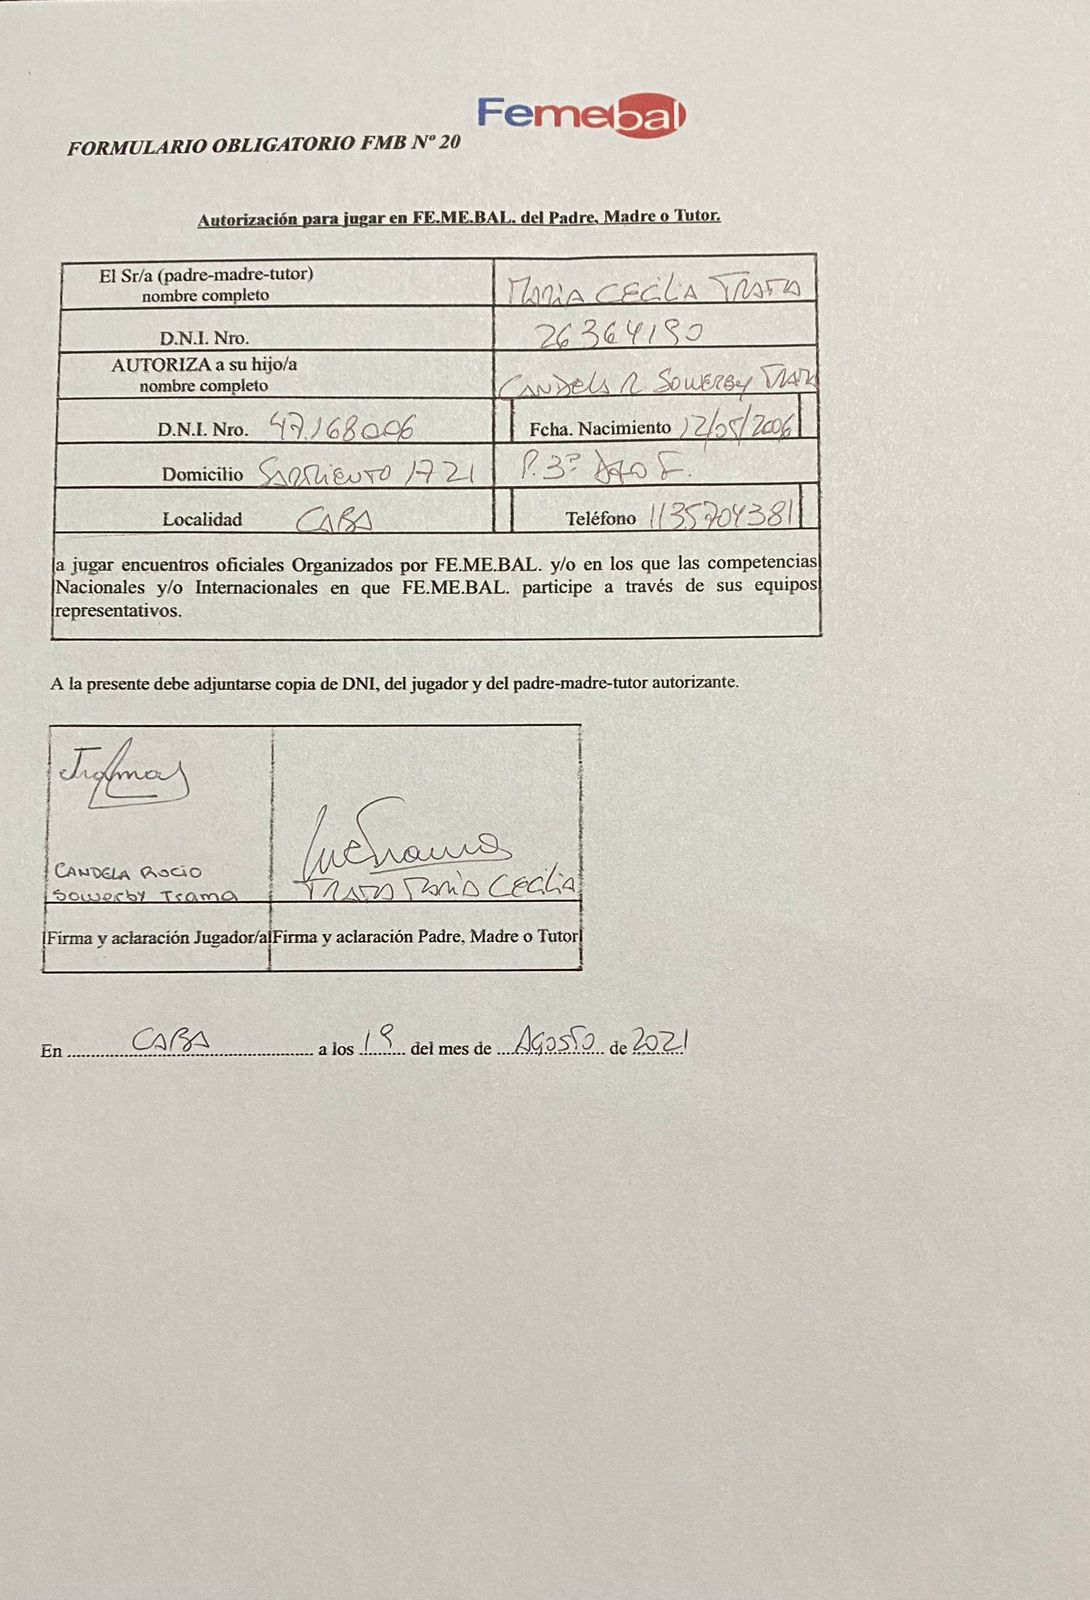 Femebal
FORMULARIO OBLIGATORIO FMB Nº 20
Autorización para jugar en FE.ME.BAL. del Padre, Madre o Tutor.
El Sr/a (padre-madre-tutor)
nombre completo
MARIA CECILIA TRAMA
D.N.I. Nro. 26364190
AUTORIZA a su hijo/a
nombre completo
CANDELA R. SOWERBY TRAMA
D.N.I. Nro. 47.168006 Fcha. Nacimiento 12/05/2006
Domicilio SARMIENTO 1721 P. 3º DPTO F.
Localidad CABA Teléfono 1135704381
a jugar encuentros oficiales Organizados por FE.ME.BAL. y/o en los que las competencias
Nacionales y/o Internacionales en que FE.ME.BAL. participe a través de sus equipos
representativos.
A la presente debe adjuntarse copia de DNI, del jugador y del padre-madre-tutor autorizante.
CANDELA ROCIO
Sowerby Trama
TRAMA MARIA CECILIA
Firma y aclaración Jugador/a Firma y aclaración Padre, Madre o Tutor
En CABA a los 19 del mes de AGOSTO de 2021